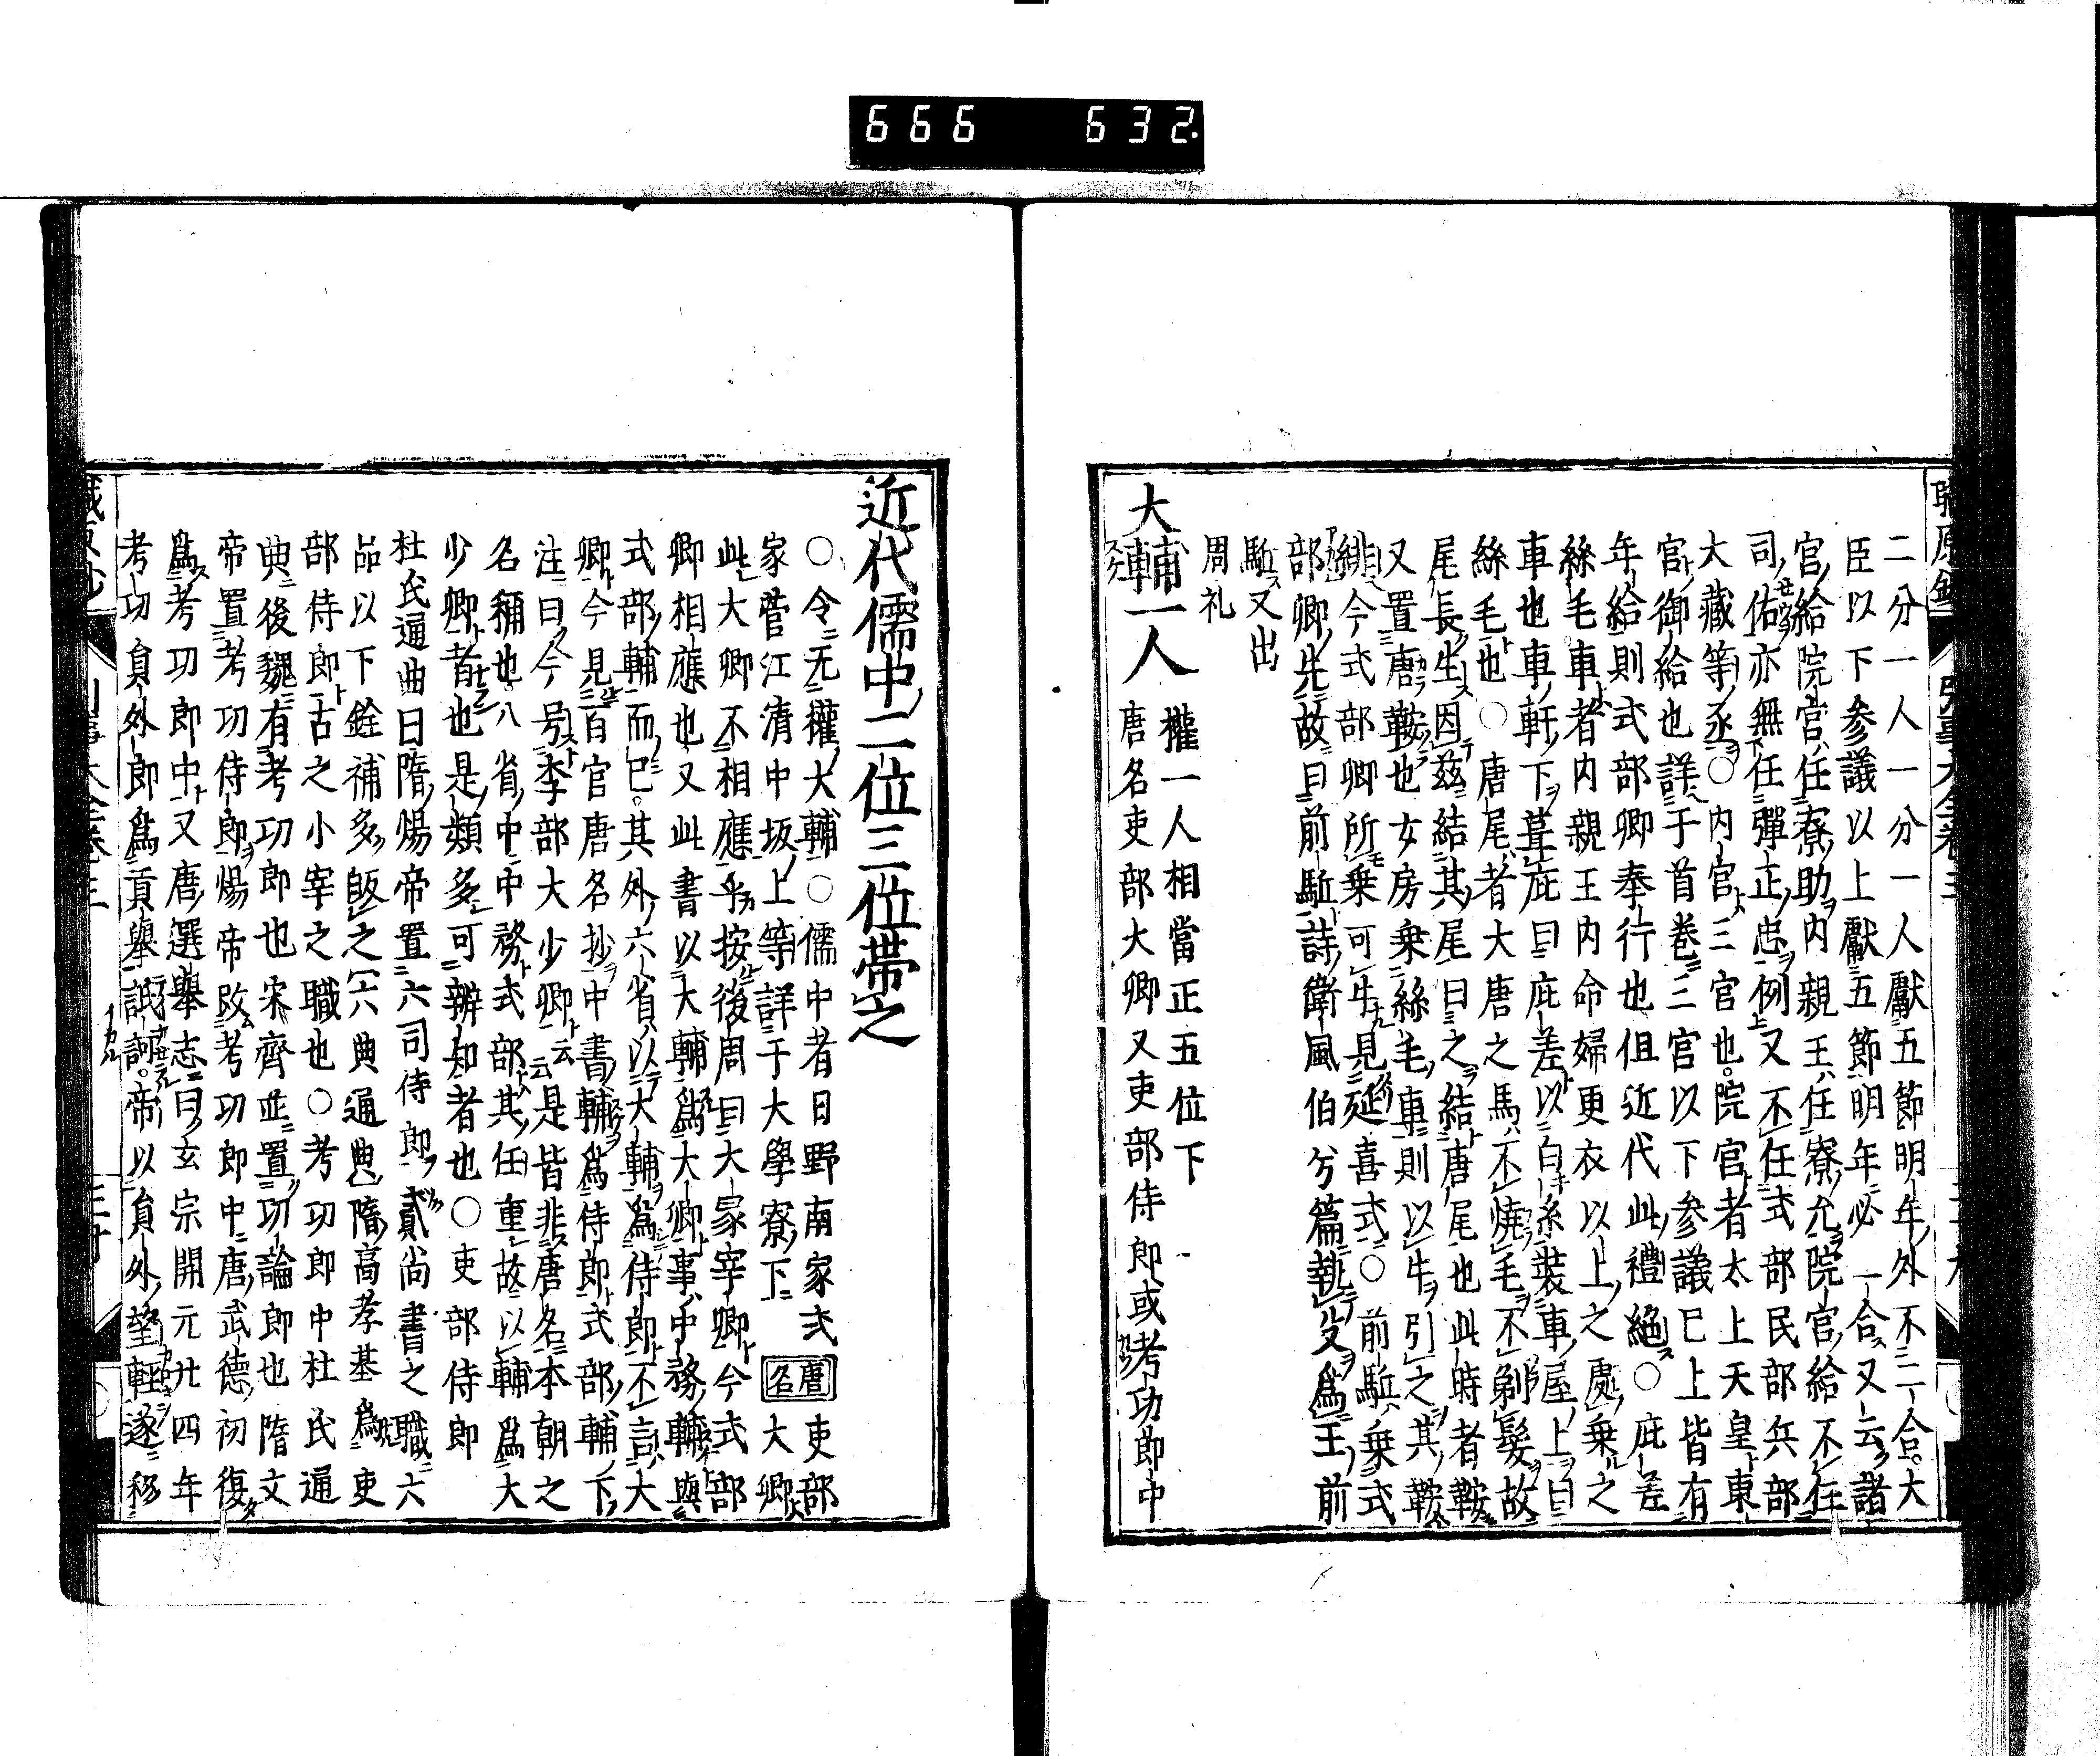 666 632.
二分一人一分一人獻五節明年外不二合。大
臣以下参議以上獻五節明年必一合又云諸
官給院宮任寮助内親王任寮允院官給不任
司佑亦無任彈正忠例又不任式部民部兵部
大藏等丞○内官三官也。院官者太上天皇東
宮御給也詳于首巻三官以下参議已上皆有
年給則式部卿奉行也但近代此禮絶○庇差
絲毛車者内親王内命婦更衣以上之處乗之
車也車軒下葺庇曰庇差以白糸装車屋上曰
絲毛也○唐尾者大唐之馬不燒毛不剃髮故
尾長生因茲結其尾曰之結唐尾也此時者鞍
又置唐鞍也女房乗絲毛車則以牛引之其鞍
緋今式部卿所乗可牛見延喜式○前駈乗式
部卿先故曰前駈詩衛風伯兮篇執殳為王前
駈又出
周礼
大輔一人 權一人相當正五位下
唐名吏部大卿又吏部侍郎或考功郎中
近代儒中二位三位帯之
○令无權大輔○儒中者日野南家式 唐名 吏部
家菅江清中坂上等詳于大學寮下 大卿
此大卿不相應乎按後周曰大冢宰卿今式部
卿相應也又此書以大輔為大卿事中務輔與
式部輔而已。其外六省以大輔為侍郎不言大
卿今見百官唐名抄中書輔為侍郎式部輔下
注曰今号李部大少卿云云是皆非唐名本朝之
名稱也八省中中務式部其任重故以輔為大
少卿者也是類多可辨知者也○吏部侍郎
杜氏通曲曰隋煬帝置六司侍郎貳尚書之職六
品以下銓補多皈之六典通典隋高孝基為吏
部侍郎古之小宰之職也○考功郎中杜氏通
典後魏有考功郎也宋齊並置功論郎也隋文
帝置考功侍郎煬帝改考功郎中唐武德初復
為考功郎中又唐選舉志曰玄宗開元廿四年
考功員外郎為貢舉詆訶。帝以員外望輕遂移